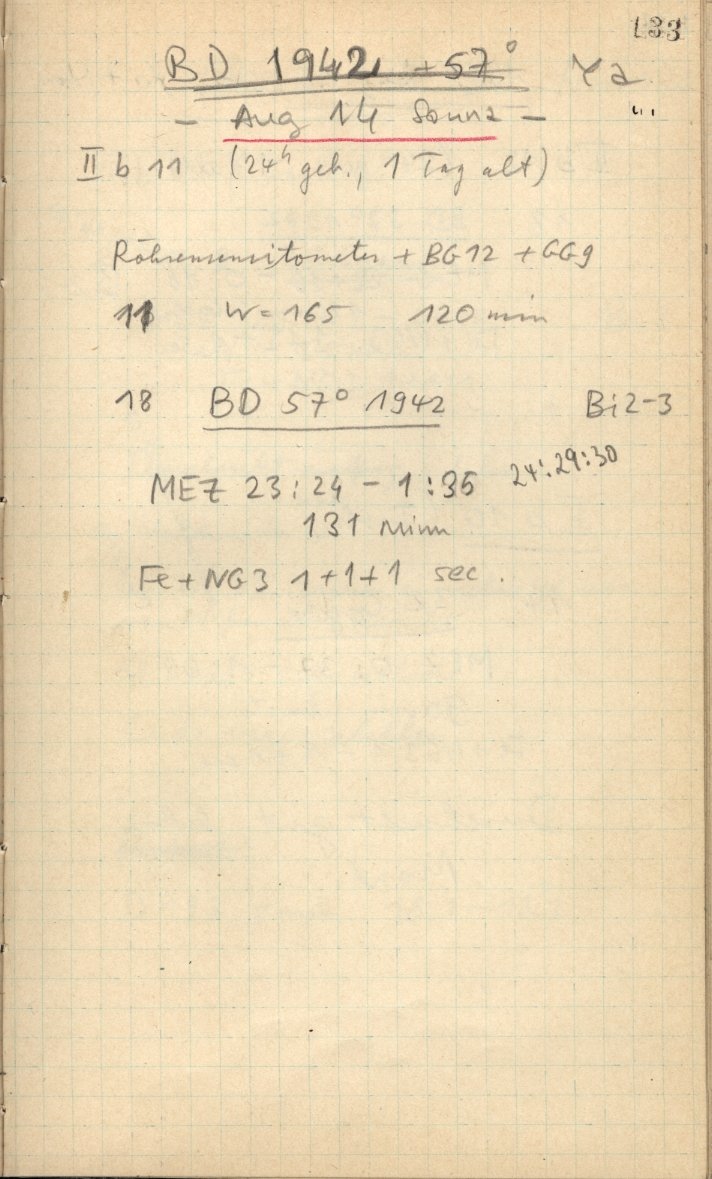 133
BD 1942 +57°
- Aug 14 Sonne -
II b 11 (24ʰ geh., 1 Tag alt)
Röhrensensitometer + BG12 + GG9
11 W=165 120 min
18 BD 57° 1942 Bi2-3
MEZ 23:24 - 1:35 24:29:30
131 Minn
Fe+NG3 1+1+1 sec.